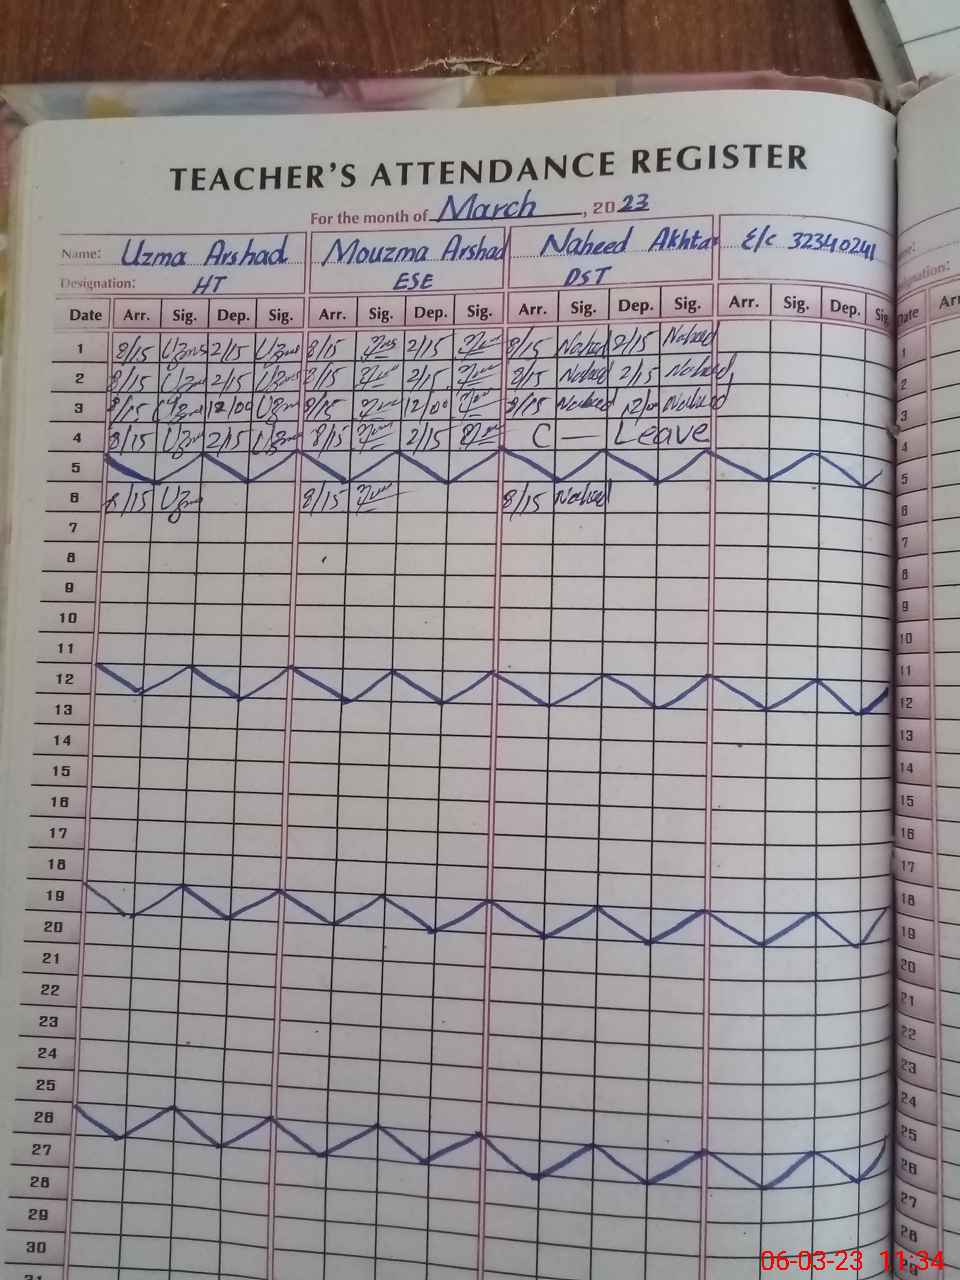 TEACHER'S ATTENDANCE REGISTER
For the month of March, 2023
Name: Uzma Arshad Mouzma Arshad Naheed Akhtar E/C 32340241
Designation: HT ESE DST
Date Arr. Sig. Dep. Sig. Arr. Sig. Dep. Sig. Arr. Sig. Dep. Sig. Arr. Sig. Dep. Sig.
1 8/15 Uzma 2/15 Uzma 8/15 2/15 8/15 Naheed 2/15 Naheed
2 8/15 Uzma 2/15 Uzma 8/15 2/15 8/15 Naheed 2/15 Naheed
3 8/15 Uzma 12/00 Uzma 8/15 12/00 8/15 Naheed Naheed
4 8/15 Uzma 2/15 Uzma 8/15 2/15 C — Leave
5
6 8/15 Uzma 8/15 8/15 Naheed
7
8
9
10
11
12
13
14
15
16
17
18
19
20
21
22
23
24
25
26
27
28
29
30
31
Date
1
2
3
4
5
6
7
8
9
10
11
12
13
14
15
16
17
18
19
20
21
22
23
24
25
26
27
28
29
06-03-23 11:34